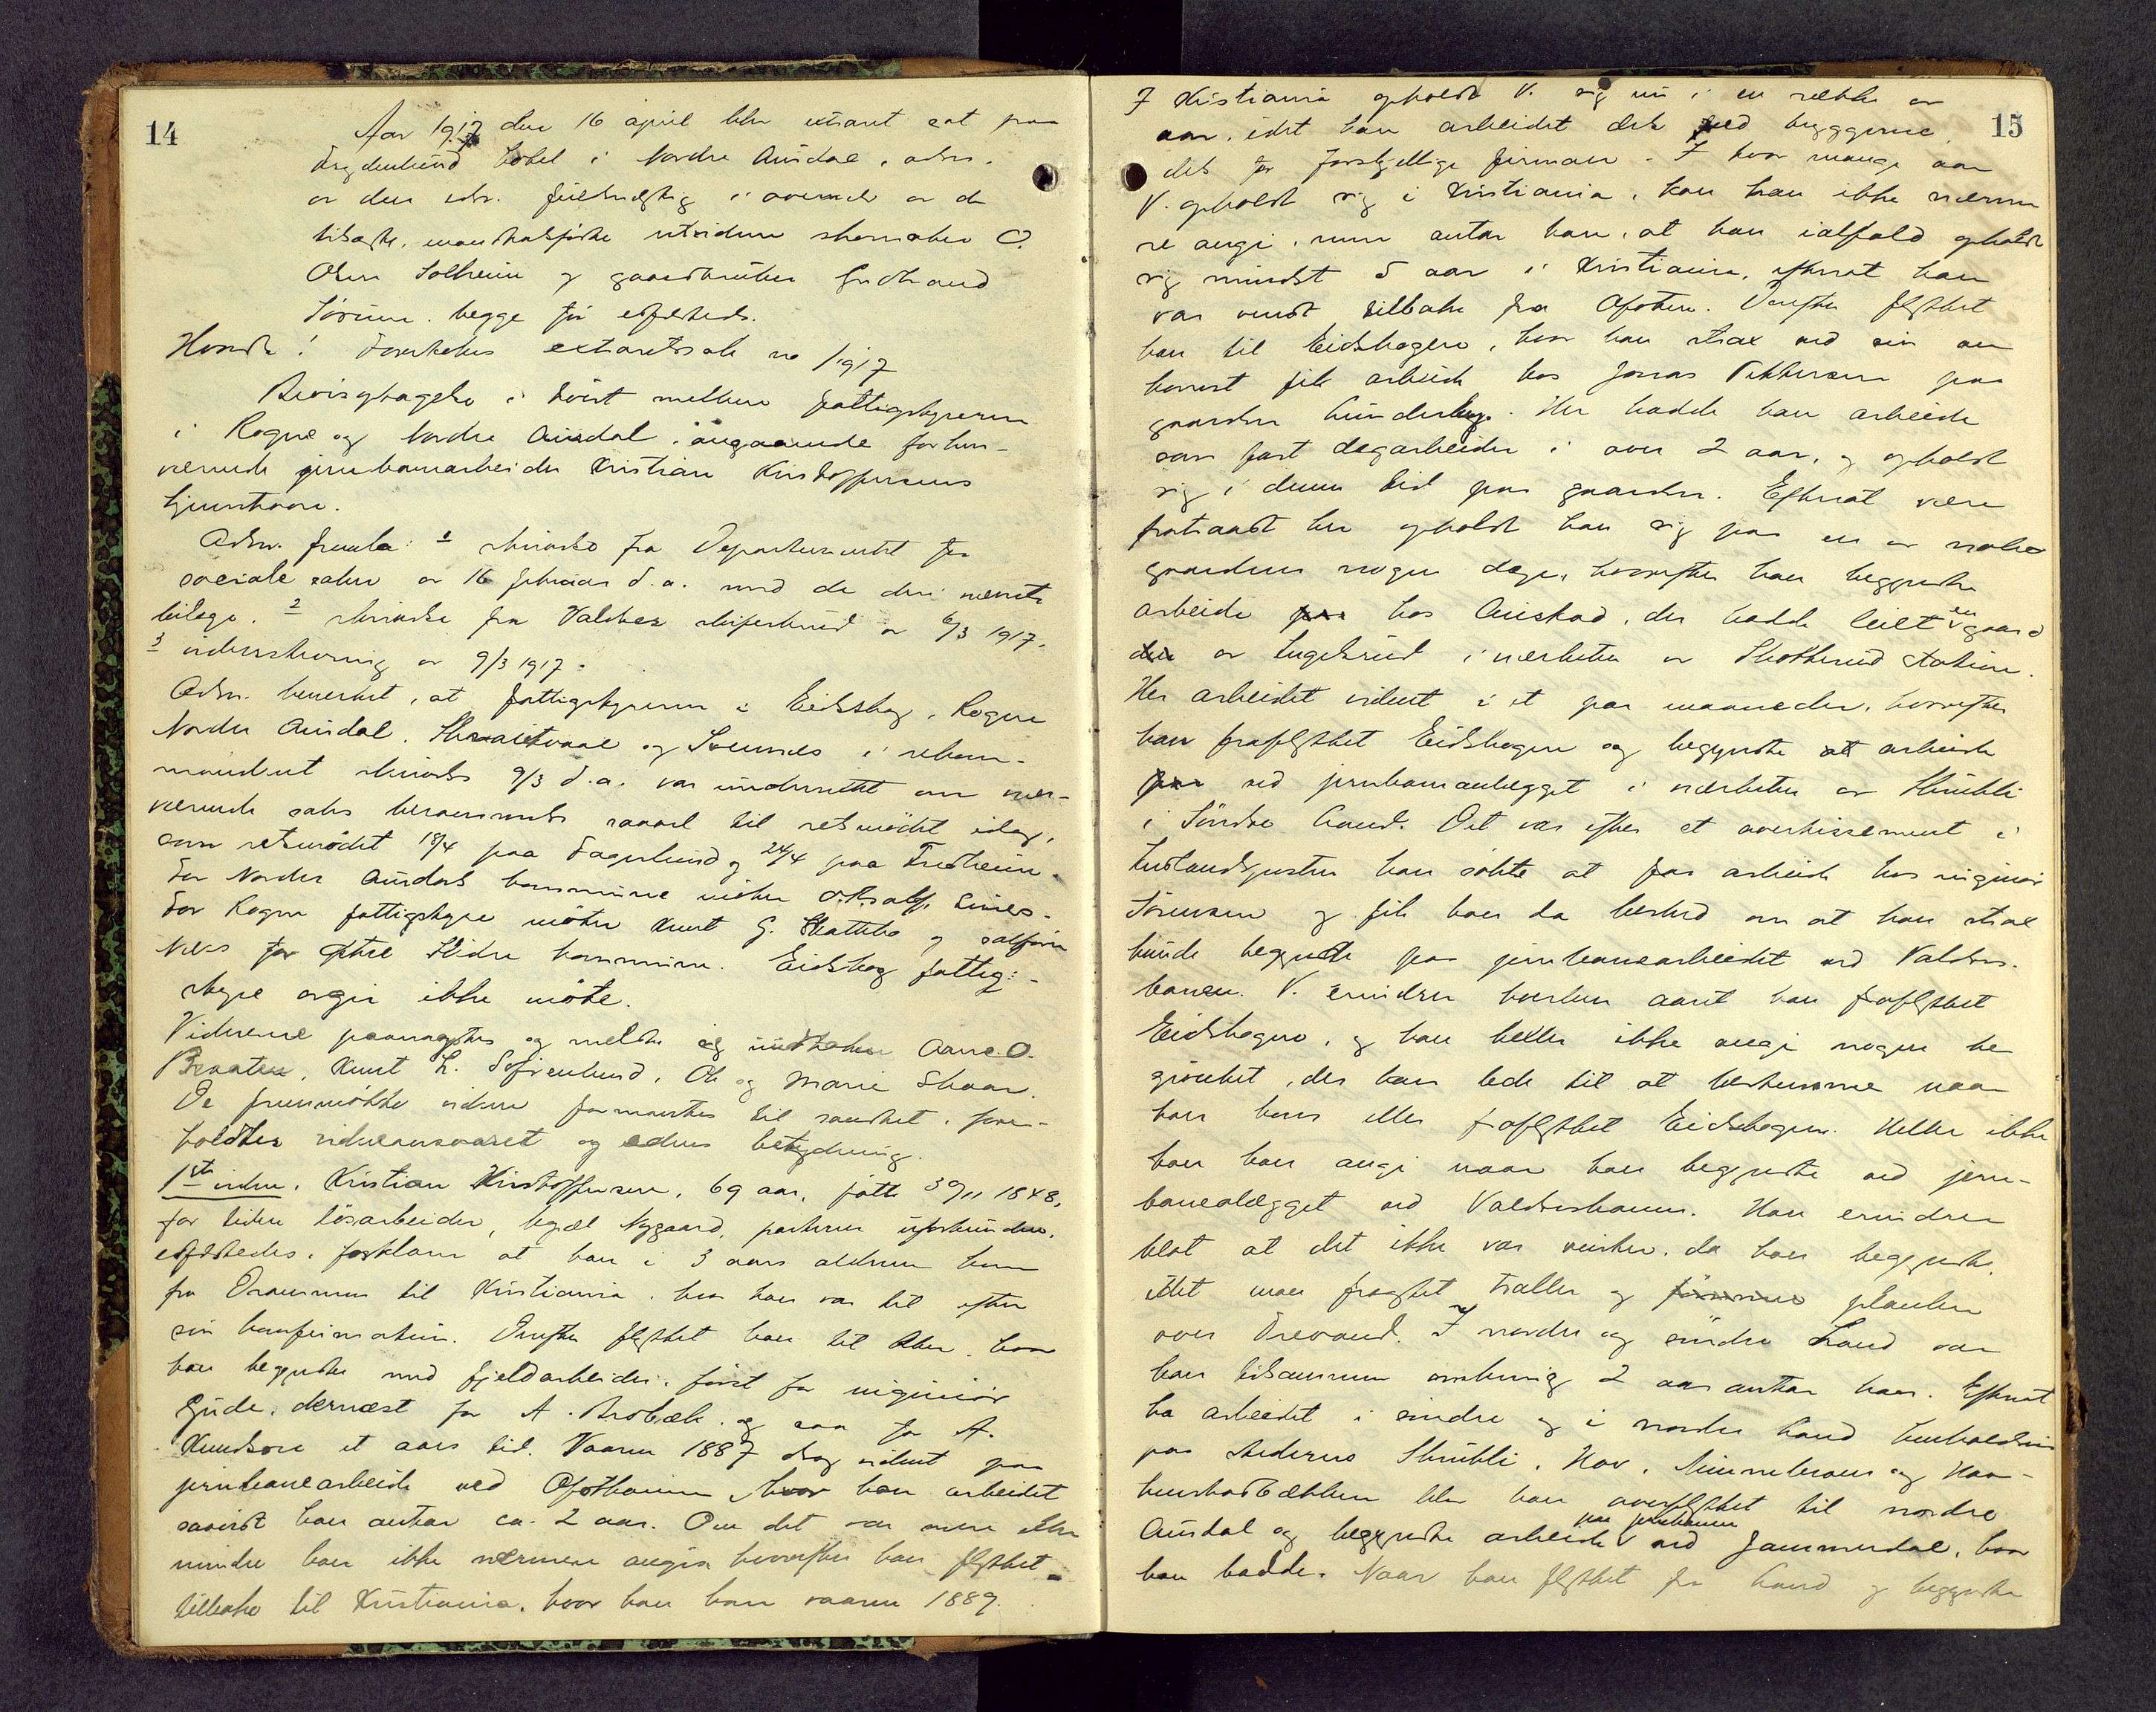 14
Aar 1917 den 16 april blev extraret sat paa
Frydenlund hotel i Nordre Aurdal, adm.
av den edv. fuldmægtig i overvær av de
tilsagte, mandtalsførte retsvidner skomaker O.
Olsen Solheim og gaardbruker Gudbrand
Sørum, begge for edfæsteds.
Hvorda! Foretokes extraretssak no /1917
Bevisoptagelse i tvist mellem fattigstyrerne
i Rogne og Nordre Aurdal angaaende forhen-
værende jernbanearbeider Kristian Kristoffersens
hjemstavn.
Adm. fremla: 1 skrivelse fra Departementet for
sociale saker av 16 februar d.a. med de deri nævnte
bilage. 2 skrivelse fra Valdres skifterkund av 6/3 1917.
3 underskrivning av 9/3 1917.
Adm. bemerket, at fattigstyrerne i Eidskog, Rogne
Nordre Aurdal, og i rekom-
manderet skrivelse 9/3 d.a. var underrettet om nær-
værende saks berammelse saavel til retsmødet idag,
som retsmødet 18/4 paa Fagerlund og 24/4 paa Fredheim.
For Nordre Aurdals kommune møter O.R.salf.
For Rogne fattigstyre møter Knut G. Skattebo og salfører
for Østre Slidre kommune. Eidskog fattig-
styre avgir ikke møte.
Vidnerne paaroptes og meldte sig undtaken Arne O.
Braaten, Knut L. Ole og Marie Skaar.
De fremmøtte vidner formantes til sandhet, fore-
holdtes vidneansvaret og edens betydning.
1st vidne, Kristian Kristoffersen, 69 aar, født 30/11 1848,
før tiden løsarbeider, bopæl Nygaard, parterne uforbunden,
edfæstedes, forklarer at han i 3 aars alderen kom
fra Drammen til Kristiania, hvor han var til efter
sin konfirmation. Derefter flyttet han til Aker, hvor
han begyndte med fjeldarbeide, først for ingeniør
Gude, dernæst for A. Brobæk og saa for A.
Knudsen et aars tid. Vaaren 1887 drog vidnet paa
jernbanearbeide ved Ofotbanen hvor han arbeidet
saavidt han antar ca. 2 aar. Om det var mere eller
mindre kan ikke nærmere angis hvorefter han flyttet
tilbake til Kristiania, hvor han kom vaaren 1889.
15
I Kristiania opholdt V. sig nu i en række av
aar, idet han arbeidet dels ved byggerne,
dels for forskjellige firmaer. I hvor mange aar
V. opholdt sig i Kristiania, kan han ikke nærme
re angi, men antar han, at han ialfald opholdt
sig mindst 5 aar i Kristiania, efterat han
var vendt tilbake fra Ofoten. Derefter flyttet
han til Eidskogen, hvor han strax ved sin an
komst fik arbeide hos Jonas Pettersen paa
gaarden Her hadde han arbeide
som fast dagarbeider i over 2 aar, og opholdt
sig i denne tid paa gaarden. Efterat være
fratraadt her opholdt han sig paa en av nabo
gaardene nogen dage, hvorefter han begyndte
arbeide hos Aurstad, der hadde leiet en gaard
av Engelsrud i nærheten av Skotterud station.
Her arbeidet vidnet i et par maaneder, hvorefter
han fraflyttet Eidskogen og begyndte at arbeide
ved jernbaneanlægget i nærheten av Skrukli
i Søndre Land. Det var efter et avertissement i
han søkte at faa arbeide hos ingeniør
Sørensen og fik han da besked om at han strax
kunde begynde paa jernbanearbeidet ved Valdres-
banen. V. erindrer hverken aaret han fraflyttet
Eidskogen, og kan heller ikke angi nogen be
givenhet, der kan lede til at bestemme naar
han kom eller fraflyttet Eidskogen. Heller ikke
kan han angi naar han begyndte ved jern-
baneanlægget ved Valdresbanen. Han erindrer
blot at det ikke var vinter, da han begyndte,
idet man fragtet traller og planker
over I nordre og søndre Land var
han tilsammen omkring 2 aar antar han. Efterat
ha arbeidet i søndre og i nordre Land henholdsvis
paa stederne Skrukli, Hov, og
blev han overflyttet til nordre
Aurdal og begyndte arbeide paa jernbanen ved hvor
han hadde. Naar han flyttet fra Land og begyndte